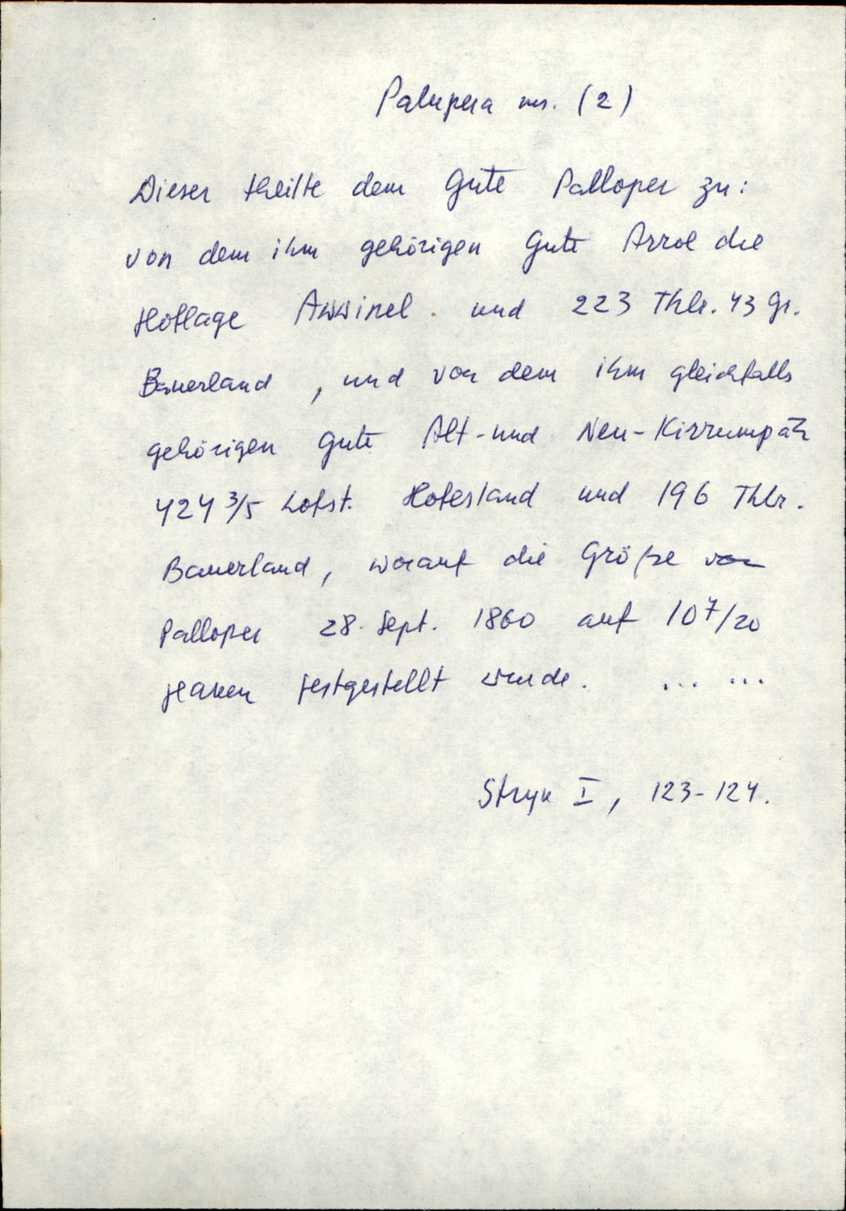 Palupera ms. (2)
Dieser theilte dem Gute Palloper zu:
von dem ihm gehörigen Gute Arrol die
Hoflage Awwinel und 223 Thlr. 43 Gr.
Bauerland, und von dem ihm gleichfalls
gehörigen Gute Alt- und Neu-Kirrumpäh
424 3/5 Lofst. Hofesland und 196 Thlr.
Bauerland, worauf die Größe von
Palloper 28. Sept. 1860 auf 10 7/20
Haken festgestellt wurde. ... ...
Stryk I, 123-124.